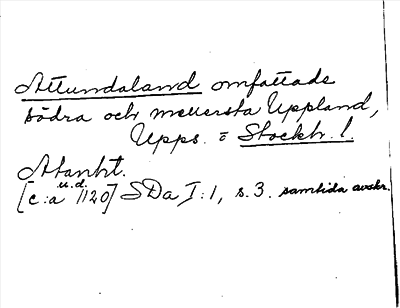 Attundaland omfattade
södra och mellersta Uppland,
Upps. = Stockh. l.
Atanht.
u.d.
[c:a 1120] SDa I:1, s. 3. samtida avskr.